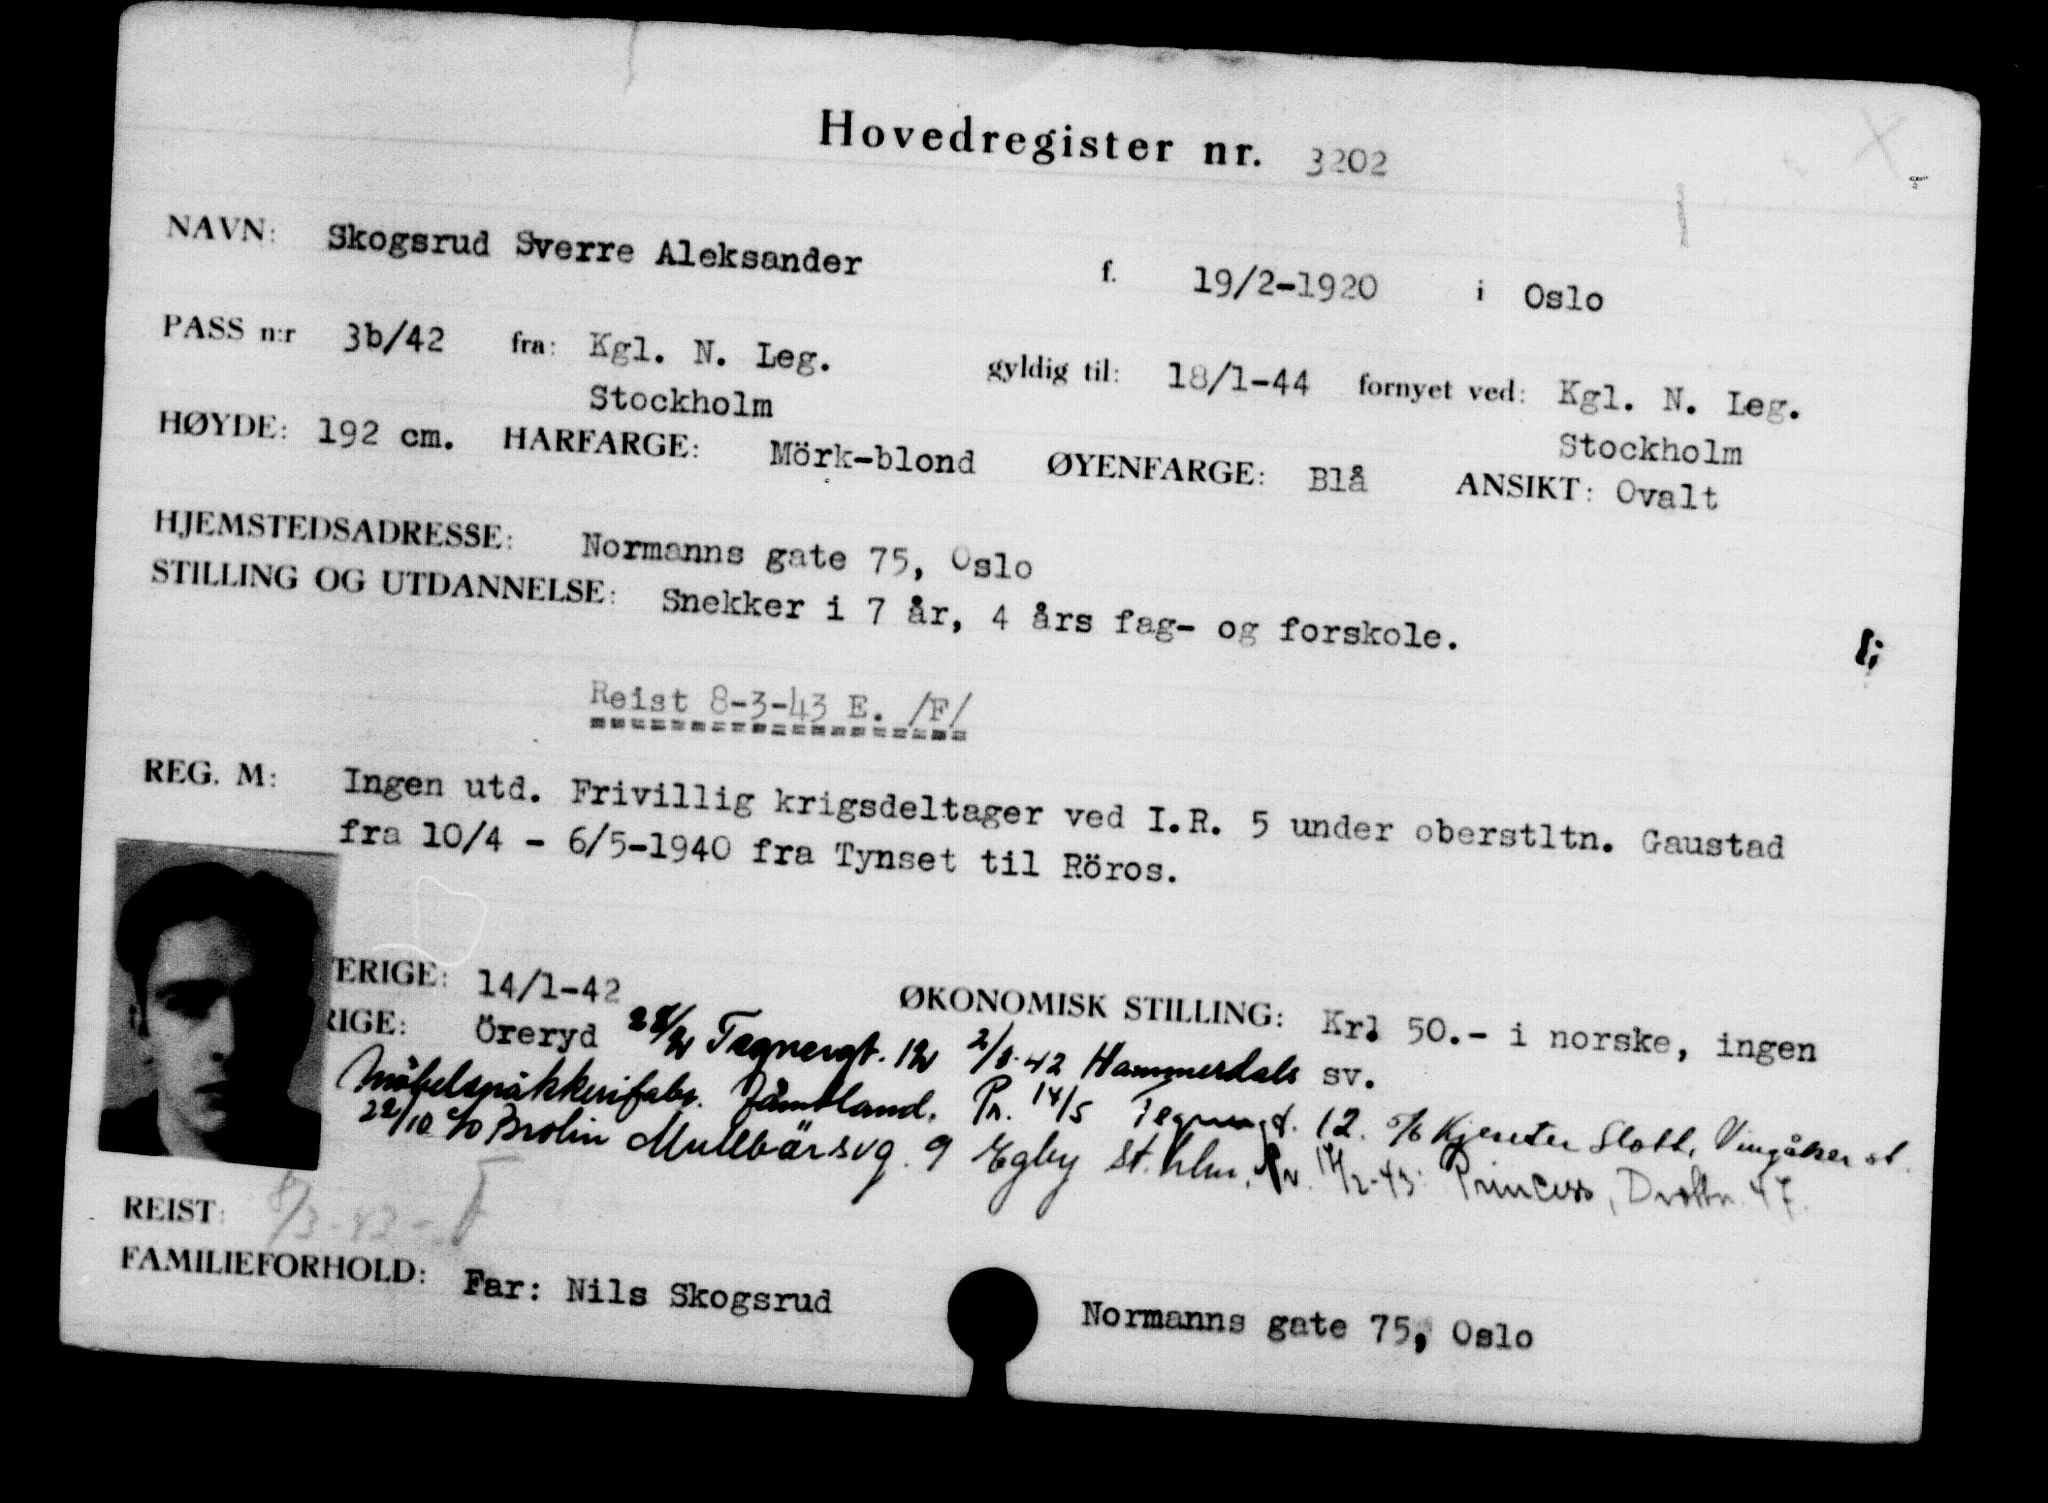 Hovedregister nr. 3202
NAVN: Skogsrud Sverre Aleksander f. 19/2-1920 i Oslo
PASS n:r 3b/42 fra: Kgl. N. Leg. gyldig til: 18/1-44 fornyet ved: Kgl. N. Leg.
Stockholm Stockholm
HØYDE: 192 cm. HARFARGE: Mörk-blond ØYENFARGE: Blå ANSIKT: Ovalt
HJEMSTEDSADRESSE: Normanns gate 75, Oslo
STILLING OG UTDANNELSE: Snekker i 7 år, 4 års fag- og forskole.
Reist 8-3-43 E. /F/
REG. M: Ingen utd. Frivillig krigsdeltager ved I.R. 5 under oberstltn. Gaustad
fra 10/4 - 6/5-1940 fra Tynset til Röros.
ERIGE: 14/1-42 ØKONOMISK STILLING: Kr. 50.- i norske, ingen
RIGE: Öreryd Tegnergt. 12 2/3-42 Hammerdals sv.
Möbelsnäkkerifabr. Jämtland. Pn. 14/5 Tegnergt. 12. 5/6 Kjesäter Slott, Vingåker st.
22/10 c/o Brolin Mullbärsvg. 9 Egby St.hlm. Pn. 14/2-43: Princess, Drottn. 47.
REIST: 8/3-43 - F
FAMILIEFORHOLD: Far: Nils Skogsrud Normanns gate 75, Oslo